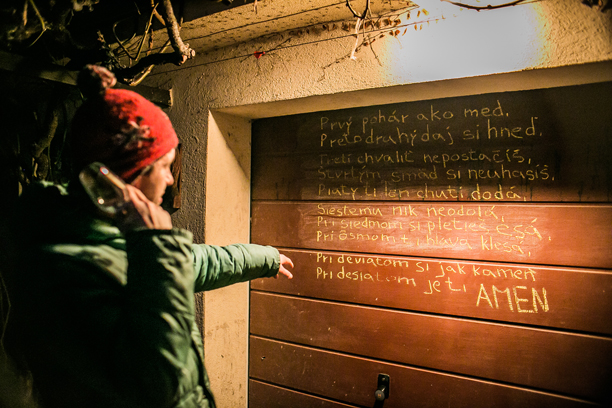 Prvý pohár ako med,
Preto druhý daj si hneď.
Tretí chváliť nepostačíš,
Štvrtým smäd si neuhasíš,
Piaty ti len chuti dodá,
Šiestemu nik neodolá,
Pri siedmom si pletieš
Pri ôsmom ti hlava klesá,
Pri deviatom si jak kameň
Pri desiatom je ti AMEN